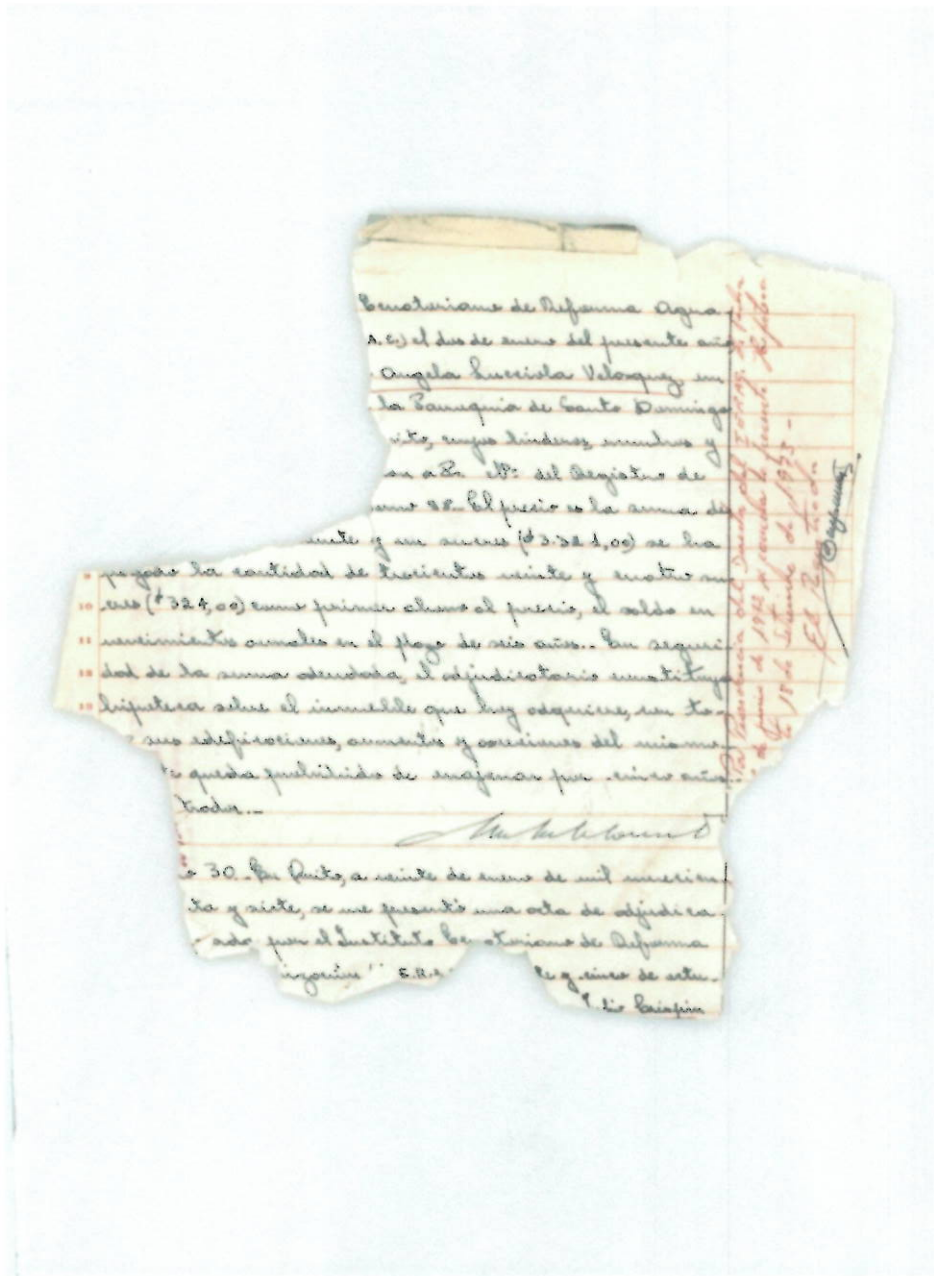 Ecuatoriano de Reforma Agra-
el dos de enero del presente año
Angela Lucciola Velasquez, en
la Parroquia de Santo Domingo
cuyos linderos, rumbos y
Nº del Registro de
El precio es la suma de
y un sucres ($3.321,00) se ha
9 pagado la cantidad de trescientos veinte y cuatro su-
10 cres ($324,00) como primer abono al precio, el saldo en
11 vencimientos anuales en el plazo de seis años.. En seguri
12 dad de la suma adeudada, el adjudicatario constituye
13 hipoteca sobre el inmueble que hoy adquiere, con to-
sus edificaciones, aumentos y accesiones del mismo
queda prohibido de enajenar por cinco años
trador.-
30.- En Quito, a veinte de enero de mil novecien
ta y siete, se me presentó una acta de adjudica
ada por el Instituto Ecuatoriano de Reforma
y cinco de octu-
Crispin
de junio de 1972 se cancela la presente
18 de Setiembre de 1975 -
El Registrador